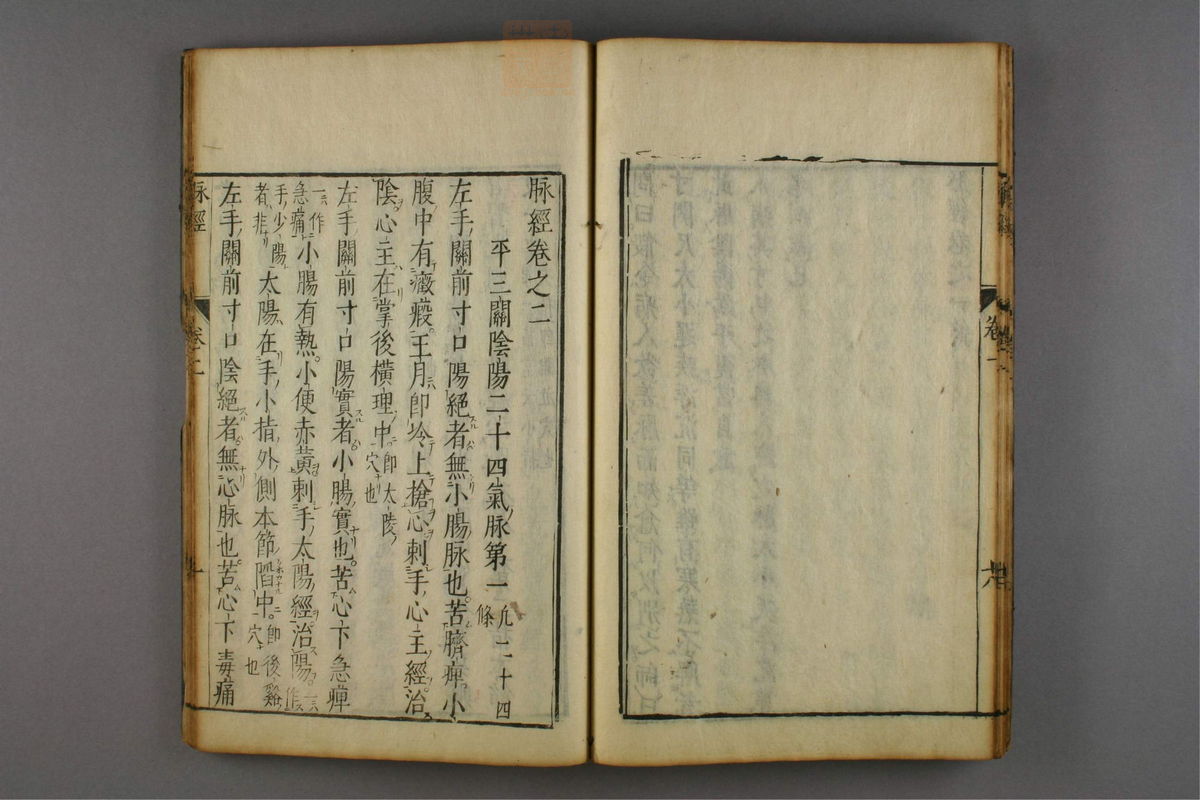 脉經卷之二
平三關陰陽二十四氣脉第一 凢二十四條
左手關前寸口陽絕者無小膓脉也苦臍痺小
腹中有癥瘕王月卽冷上搶心刺手心主經治
陰心主在掌後橫理中 卽太陵穴也
左手關前寸口陽實者小膓實也苦心下急痺
一作急痛小膓有熱小便赤黃刺手太陽經治陽 一作手少陽者非
太陽在手小指外側本節陷中 卽後谿穴也
左手關前寸口陰絕者無心脉也苦心下毒痛
脉經 卷二 一
卷一